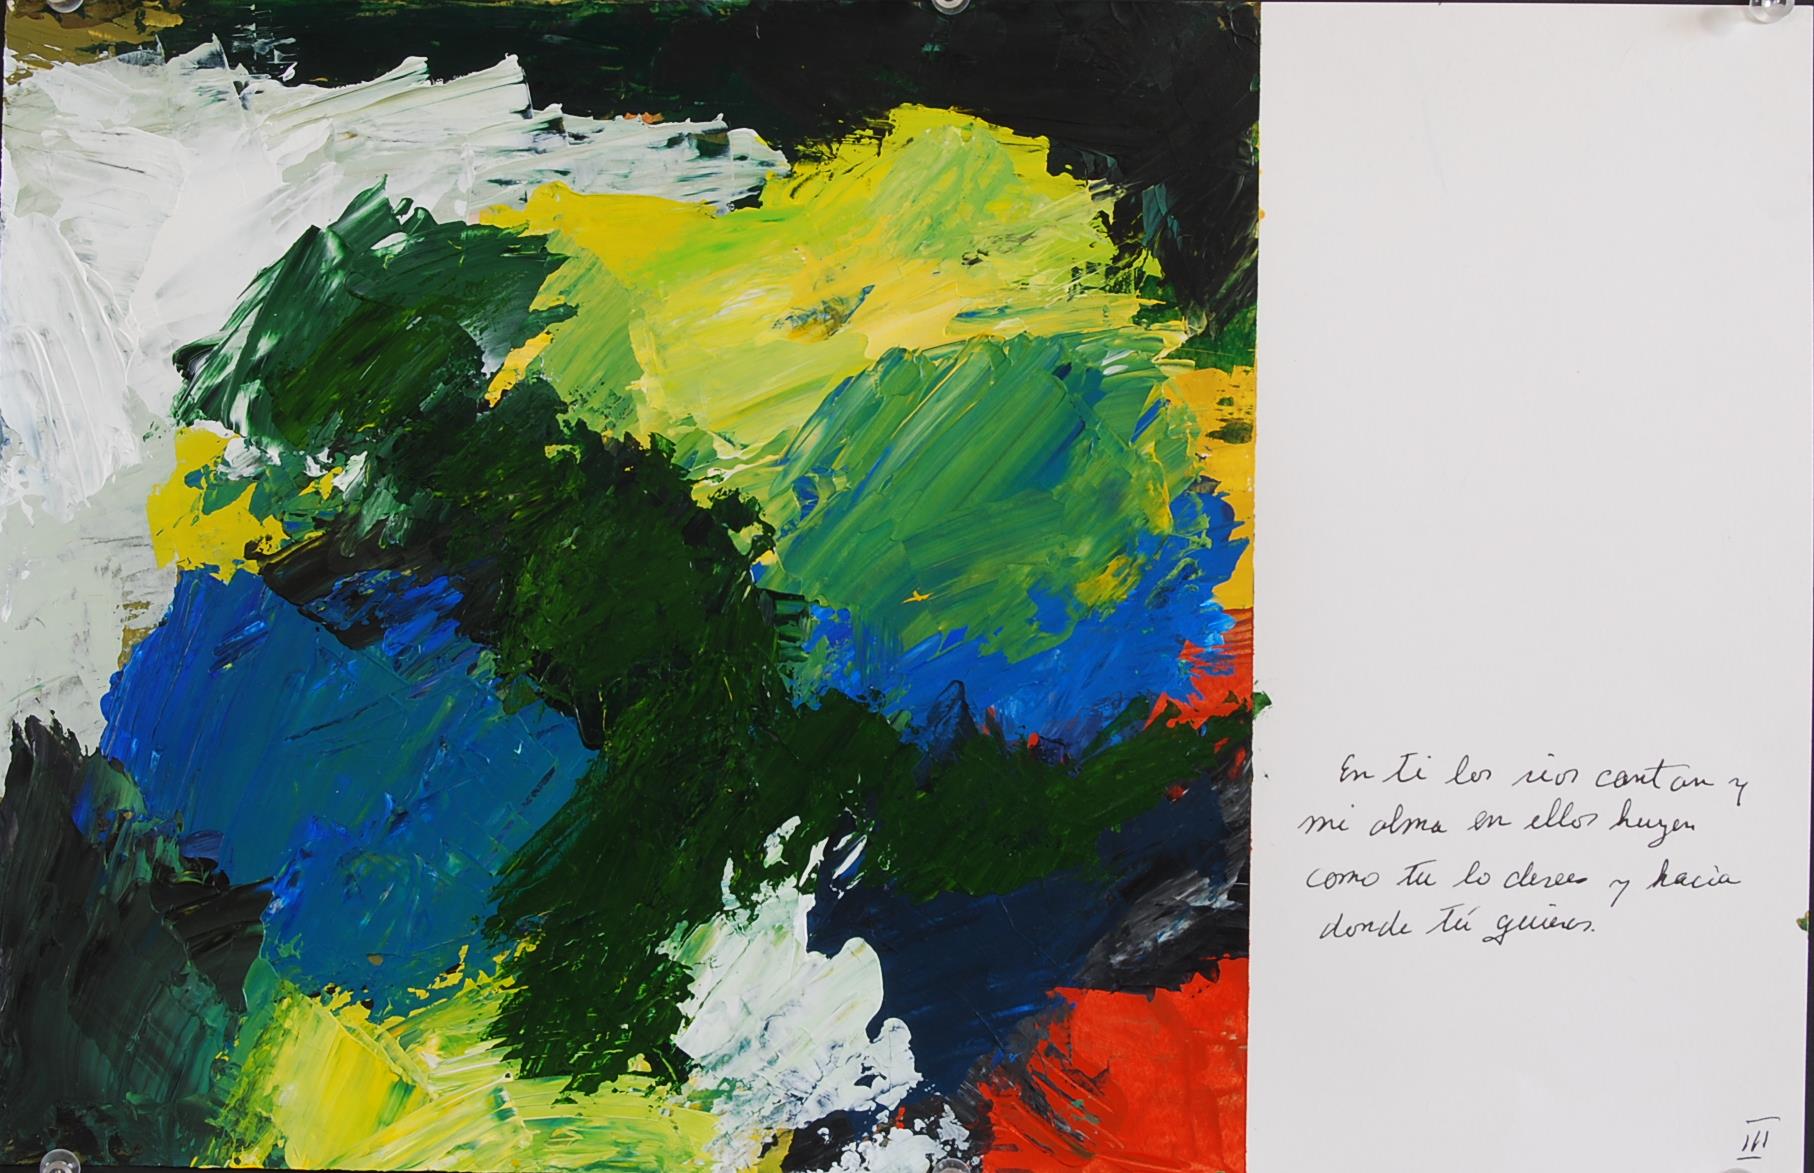 En ti los rios cantan y
mi alma en ellos huyen
como tu lo desees y hacia
donde tú quieres.
III